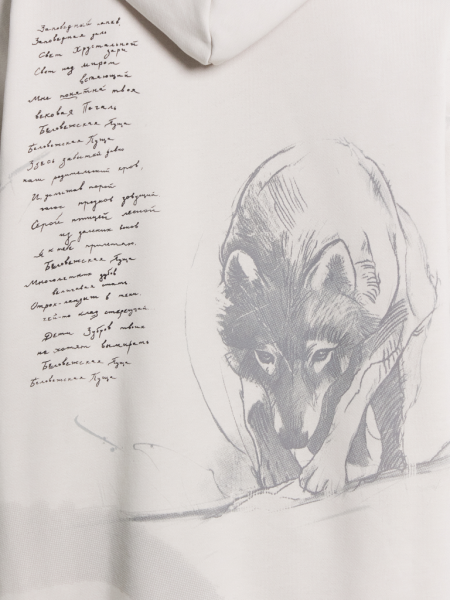 Заповедный напев,
Заповедная даль
Свет Хрустальной
зари
Свет над миром
встающий
Мне понятна твоя
вековая Печаль
Беловежская Пуща
Беловежская Пуща
Здесь забытый давно
наш родительский кров,
И услышав порой
голос предков зовущий
Серой птицей лесной
из далеких веков
Я к тебе прилетаю,
Беловежская Пуща
Многолетних зубров
величавая стать
Отрок-ландыш в тени
чей-то клад стерегущий
Дети Зубров твоих
не хотят вымирать
Беловежская Пуща
Беловежская Пуща